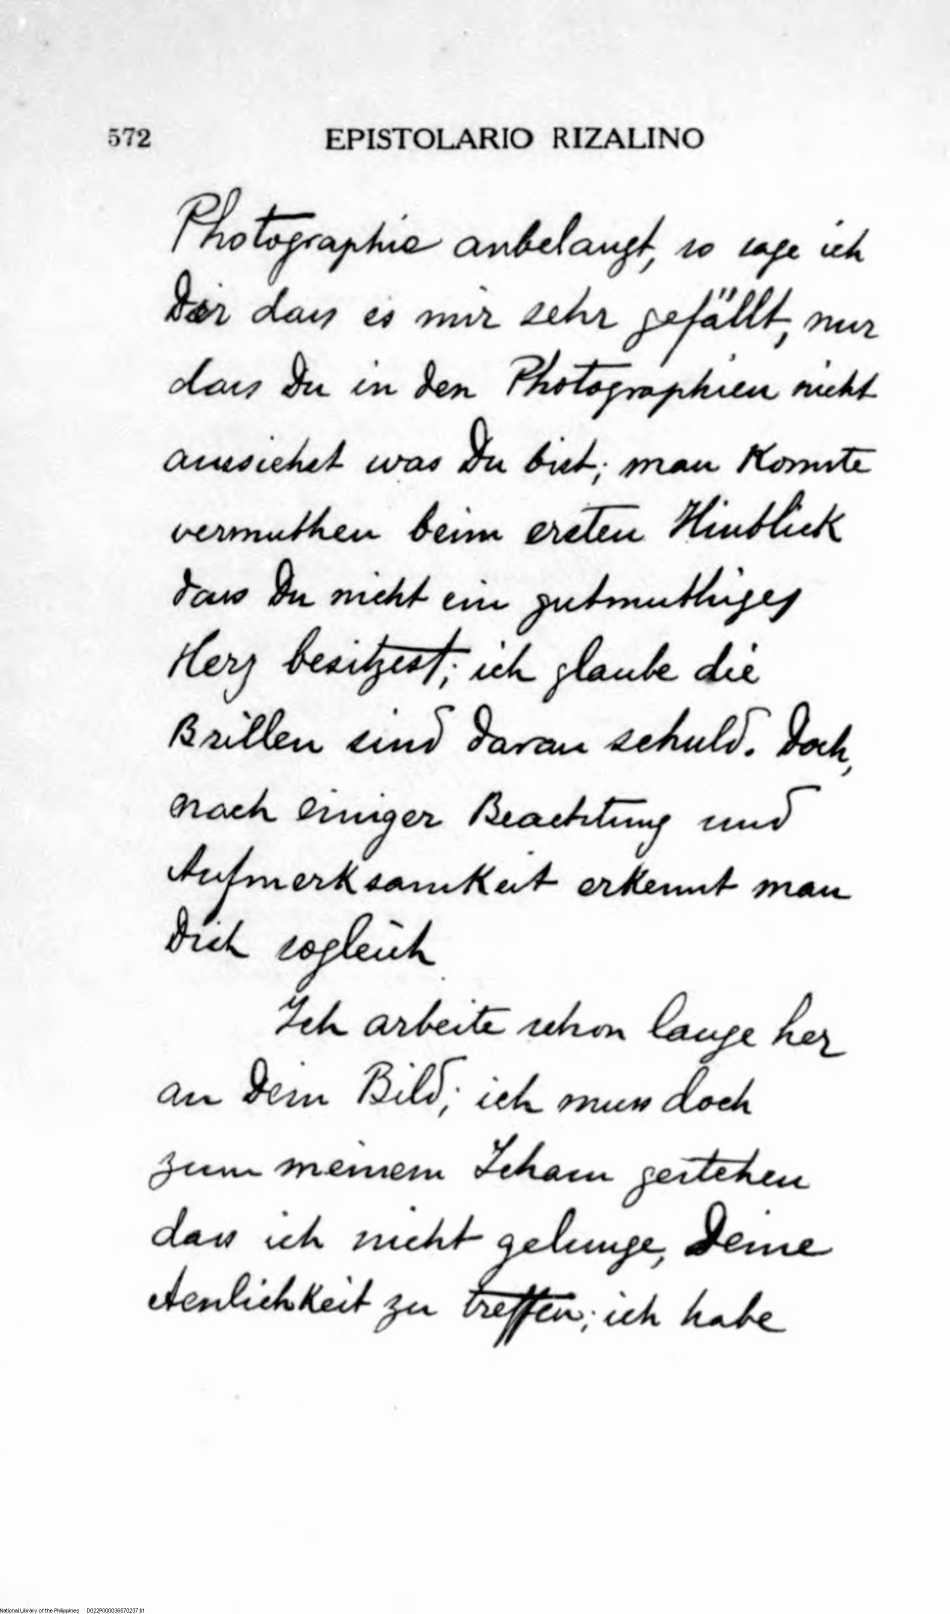 572 EPISTOLARIO RIZALINO
Photographie anbelangt, so sage ich
Dir dass es mir sehr gefällt, nur
dass Du in den Photographien nicht
aussiehst was Du bist; man konnte
vermuthen beim ersten Hinblick
dass Du nicht ein gutmuthiges
Herz besitzest; ich glaube die
Brillen sind daran schuld. Doch,
nach einiger Beachtung und
Aufmerksamkeit erkennt man
Dich sogleich
Ich arbeite schon lange her
an Dein Bild; ich muss doch
zum meinem Scham gestehen
dass ich nicht gelunge, Deine
Aenlichkeit zu treffen; ich habe
National Library of the Philippines D022R0000036570237.tif